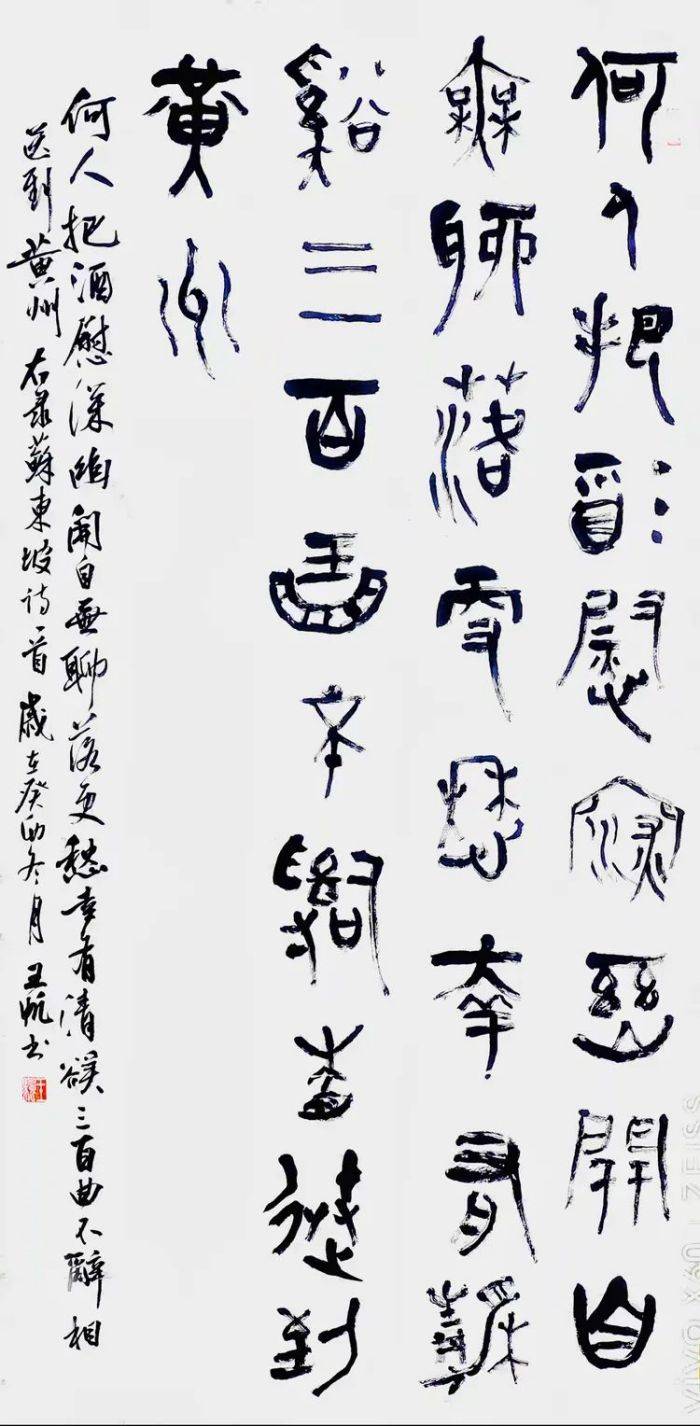 何人把酒慰深幽開自
無聊落更愁幸有清
谿三百曲不辭相送到
黄州
何人把酒慰深幽開自無聊落更愁幸有清谿三百曲不辭相
送到黄州 右录蘇東坡诗一首 歲在癸卯冬月 王帆书
ZEISS